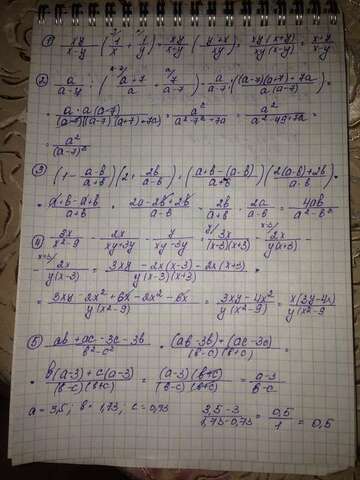 1) xy/(x-y) · (1/x + 1/y) = xy/(x-y) · ((y+x)/xy) = xy(x+y)/(xy(x-y)) = (x+y)/(x-y)
2) a/(a-7) : ((a+7)/a + 7/(a-7)) = a/(a-7) : (((a-7)(a+7)+7a)/(a(a-7))) =
= a·a(a-7)/((a-7)(a-7)(a+7)+7a) = a²/(a²-7²+7a) = a²/(a²-49+7a) =
= a²/(a-7)²
3) (1 - (a-b)/(a+b))(2 + 2b/(a-b)) = ((a+b-(a-b))/(a+b))((2(a-b)+2b)/(a-b)) =
= (a+b-a+b)/(a+b) · (2a-2b+2b)/(a-b) = 2b/(a+b) · 2a/(a-b) = 4ab/(a²-b²)
4) 3x/(x²-9) - 2x/(xy+3y) - y/(xy-3y) = 3x/((x-3)(x+3)) - 2x/(y(x+3)) -
- 2x/(y(x-3)) = (3xy-2x(x-3)-2x(x+3))/(y(x-3)(x+3)) =
= (3xy-2x²+6x-2x²-6x)/(y(x²-9)) = (3xy-4x²)/(y(x²-9)) = x(3y-4x)/(y(x²-9)
5) (ab+ac-3c-3b)/(b²-c²) = ((ab-3b)+(ac-3c))/((b-c)(b+c)) =
= (b(a-3)+c(a-3))/((b-c)(b+c)) = (a-3)(b+c)/((b-c)(b+c)) = (a-3)/(b-c)
a = 3,5; b = 1,73, c = 0,73 (3,5-3)/(1,73-0,73) = 0,5/1 = 0,5